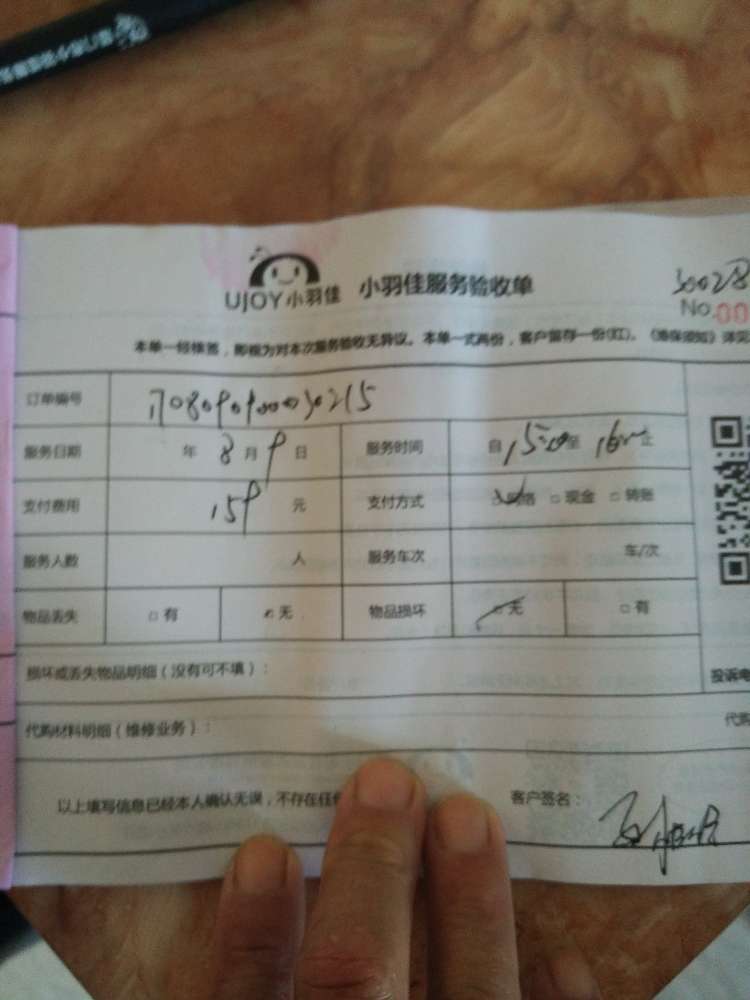 UJOY小羽佳 小羽佳服务验收单
30028
No.00
本单一经核签，即视为对本次服务验收无异议。本单一式两份，客户留存一份(红)。《维保须知》详见
订单编号 17080909000030215
服务日期 年 8 月 9 日 服务时间 自 15:00 至 16:00 止
支付费用 159 元 支付方式 网络 □现金 □转账
服务人数 人 服务车次 车/次
物品丢失 □有 无 物品损坏 无 □有
损坏或丢失物品明细（没有可不填）： 投诉电
代购材料明细（维修业务）： 代购
以上填写信息已经本人确认无误，不存在任 客户签名：